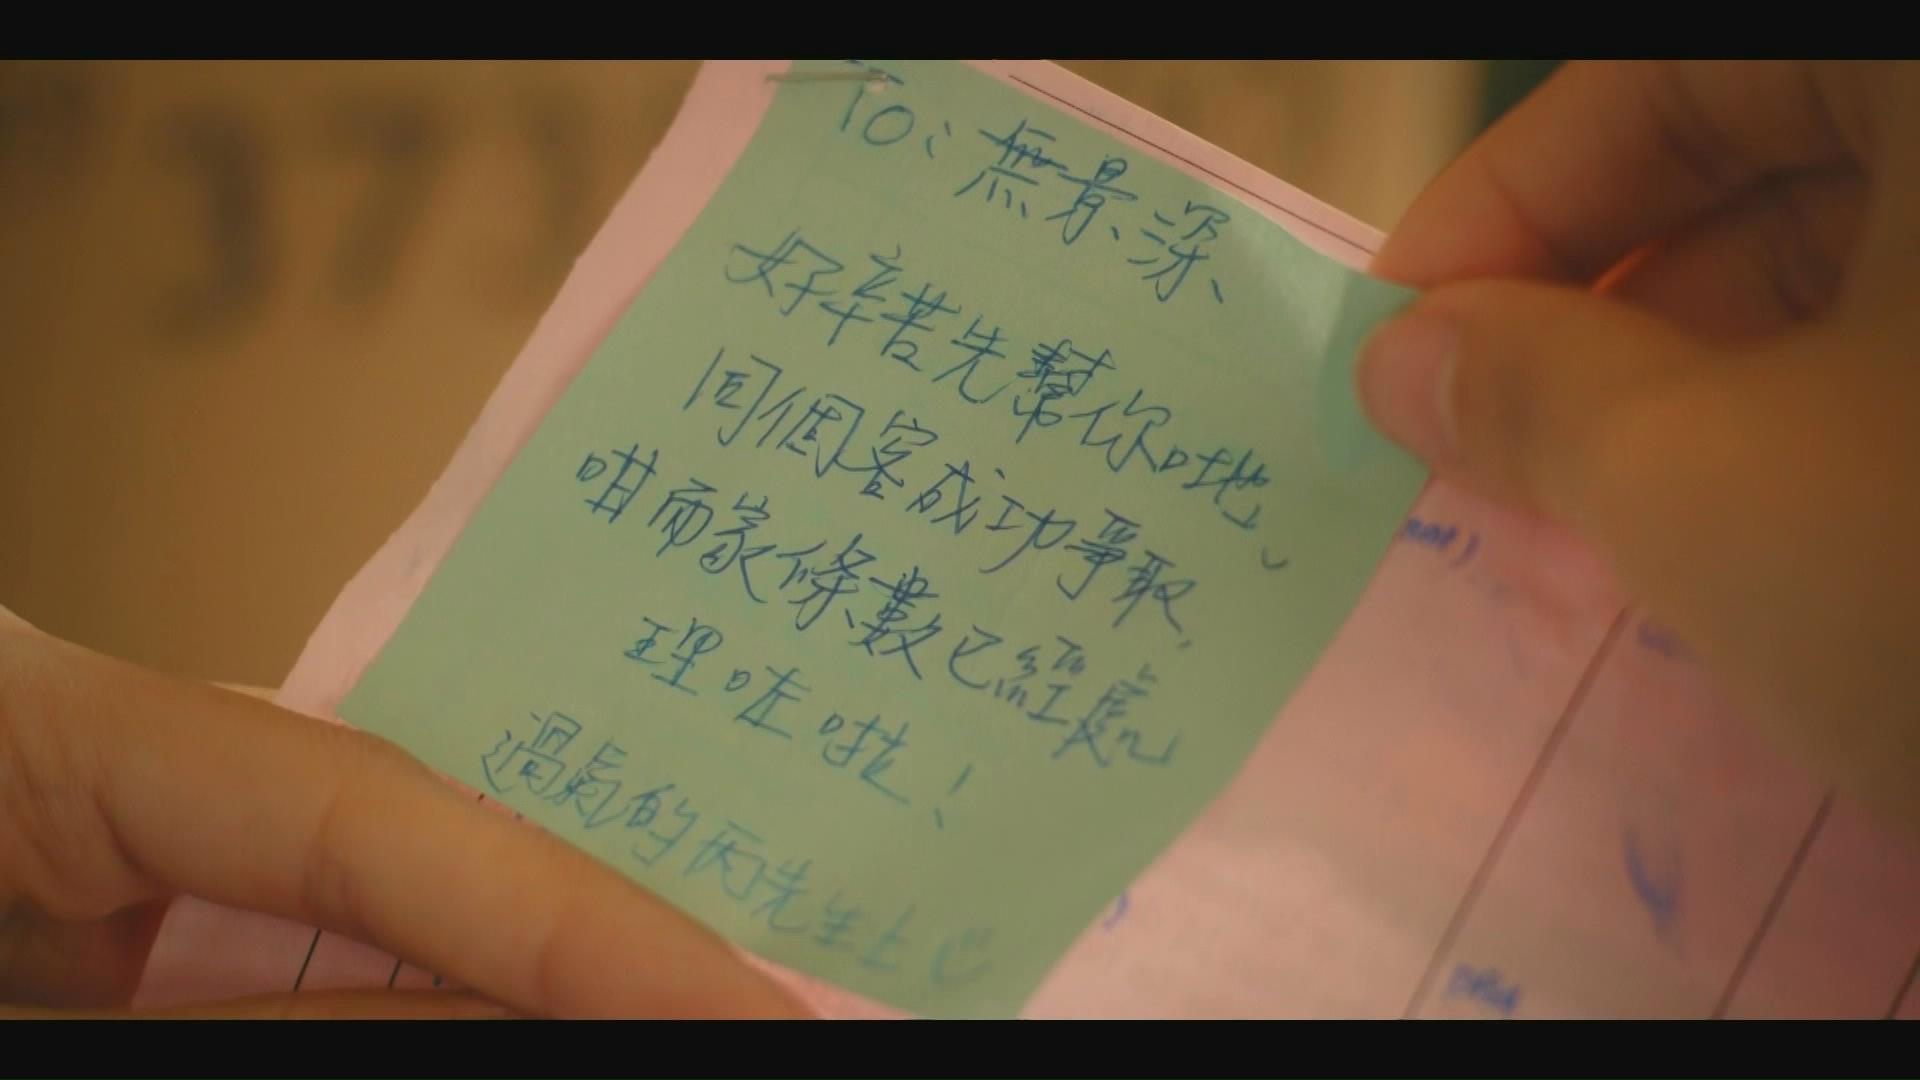 To: 無景深、
好辛苦先幫你哋、
同個客成功爭取,
咁而家條數已經處
理咗啦!
過氣的丙先生上